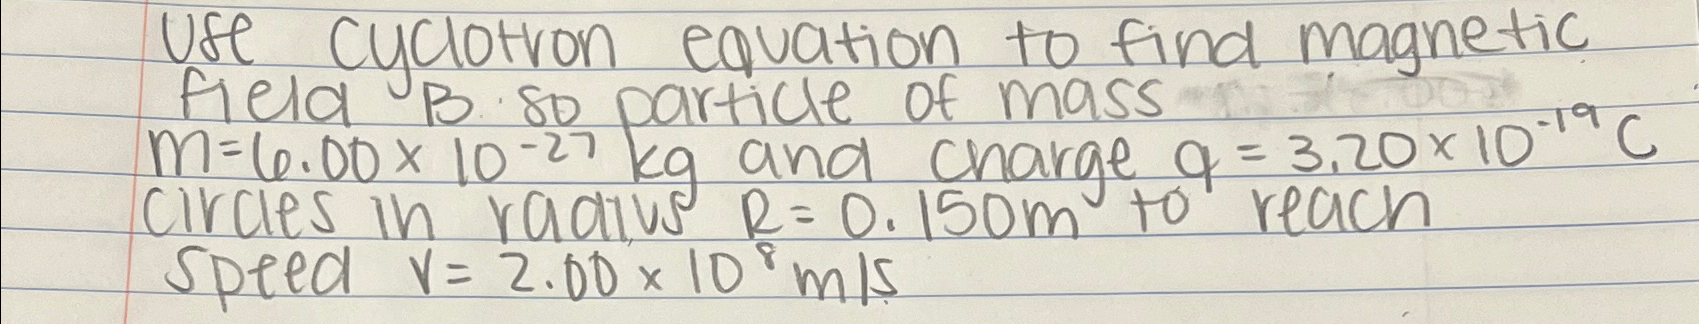 Use cyclotron equation to find magnetic
field B so particle of mass
m=6.00×10⁻²⁷ kg and charge q = 3.20×10⁻¹⁹ C
circles in radius R=0.150m to reach
speed v= 2.00×10⁸ m/s